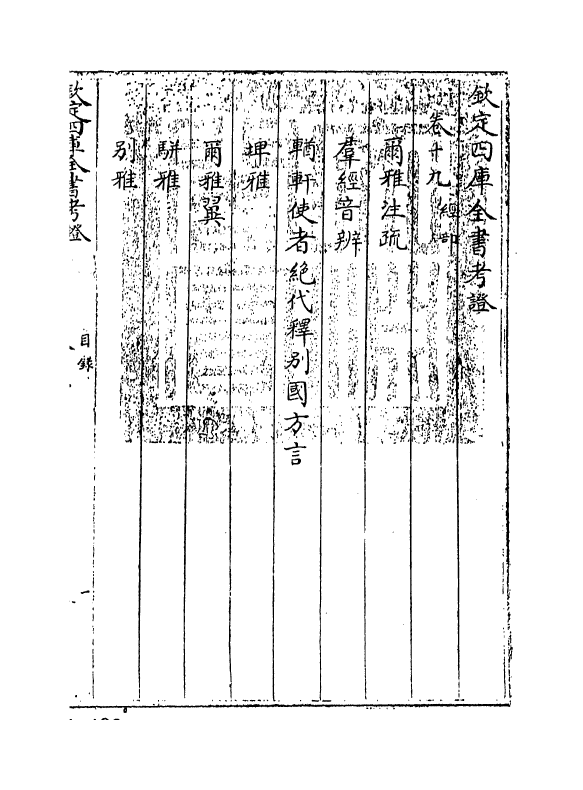 欽定四庫全書考證
卷十九 經部
爾雅注疏
羣經音辨
輶軒使者絶代釋别國方言
埤雅
爾雅翼
駢雅
别雅
欽定四庫全書考證
目錄
一